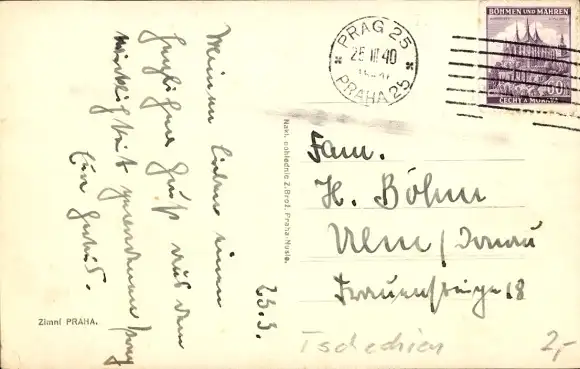 Meinen Lieben einen
herzlichen Gruß aus dem
Prag
23.3.
Zimní PRAHA.
Nakl. pohlednic Z. Brož, Praha-Nusle.
PRAG 25
25 III 40
PRAHA 25
BÖHMEN UND MÄHREN
60
ČECHY A MORAVA
Fam.
H. Böhm
Ulm/Donau
Frauensteige 18
Tschechien
2,-